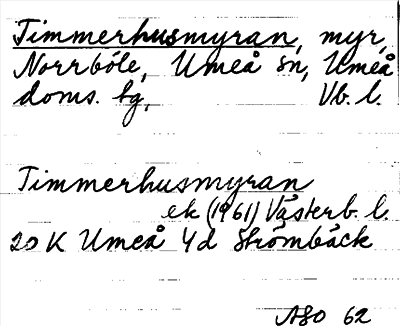 Timmerhusmyran, myr,
Norrböle, Umeå sn, Umeå
doms. bg, Vb. l.
Timmerhusmyran
ek (1961) Västerb. l.
20 K Umeå 4d Strömbäck
ASO 62